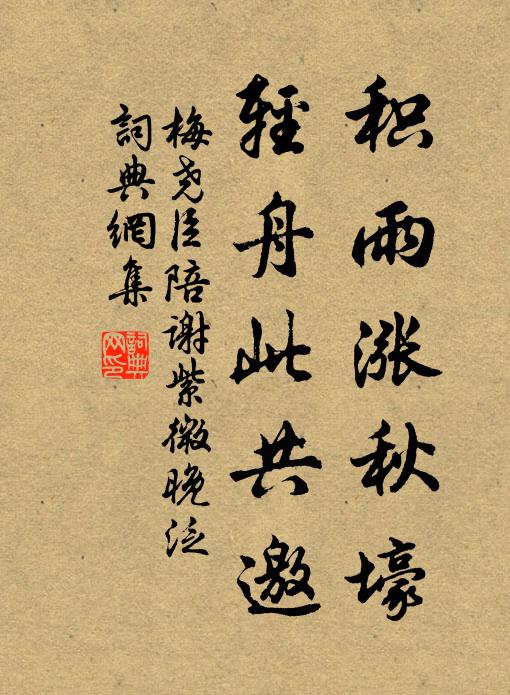 积雨涨秋壕
轻舟此共邀
梅尧臣陪谢紫微晚泛
詞典網集
詞典网印